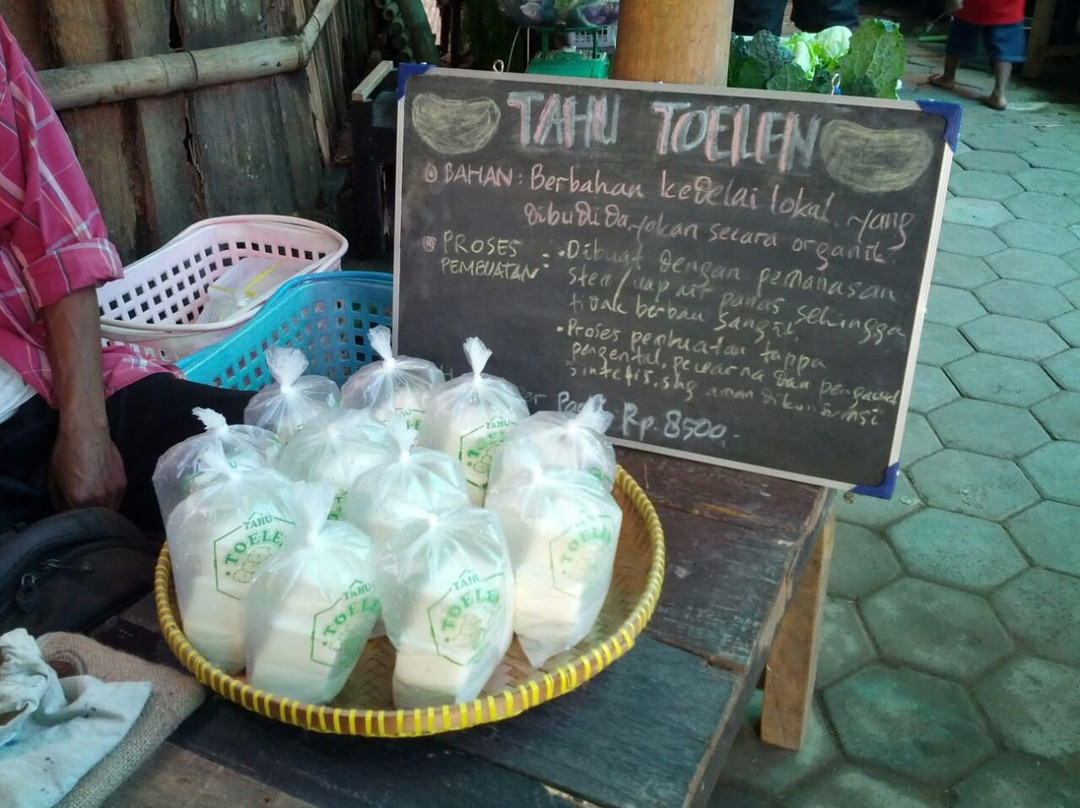 TAHU TOELEN
BAHAN: Berbahan kedelai lokal yang
dibudidayakan secara organik.
PROSES PEMBUATAN:
• Dibuat dengan pemanasan
stem/uap air panas sehingga
tidak berbau sangit.
• Proses pembuatan tanpa
pengental, pewarna dan pengawet
sintetis, shg aman dikonsumsi
Rp. 8500,-
TAHU
TOELEN
TAHU
TOELE
TAHU
TOELE